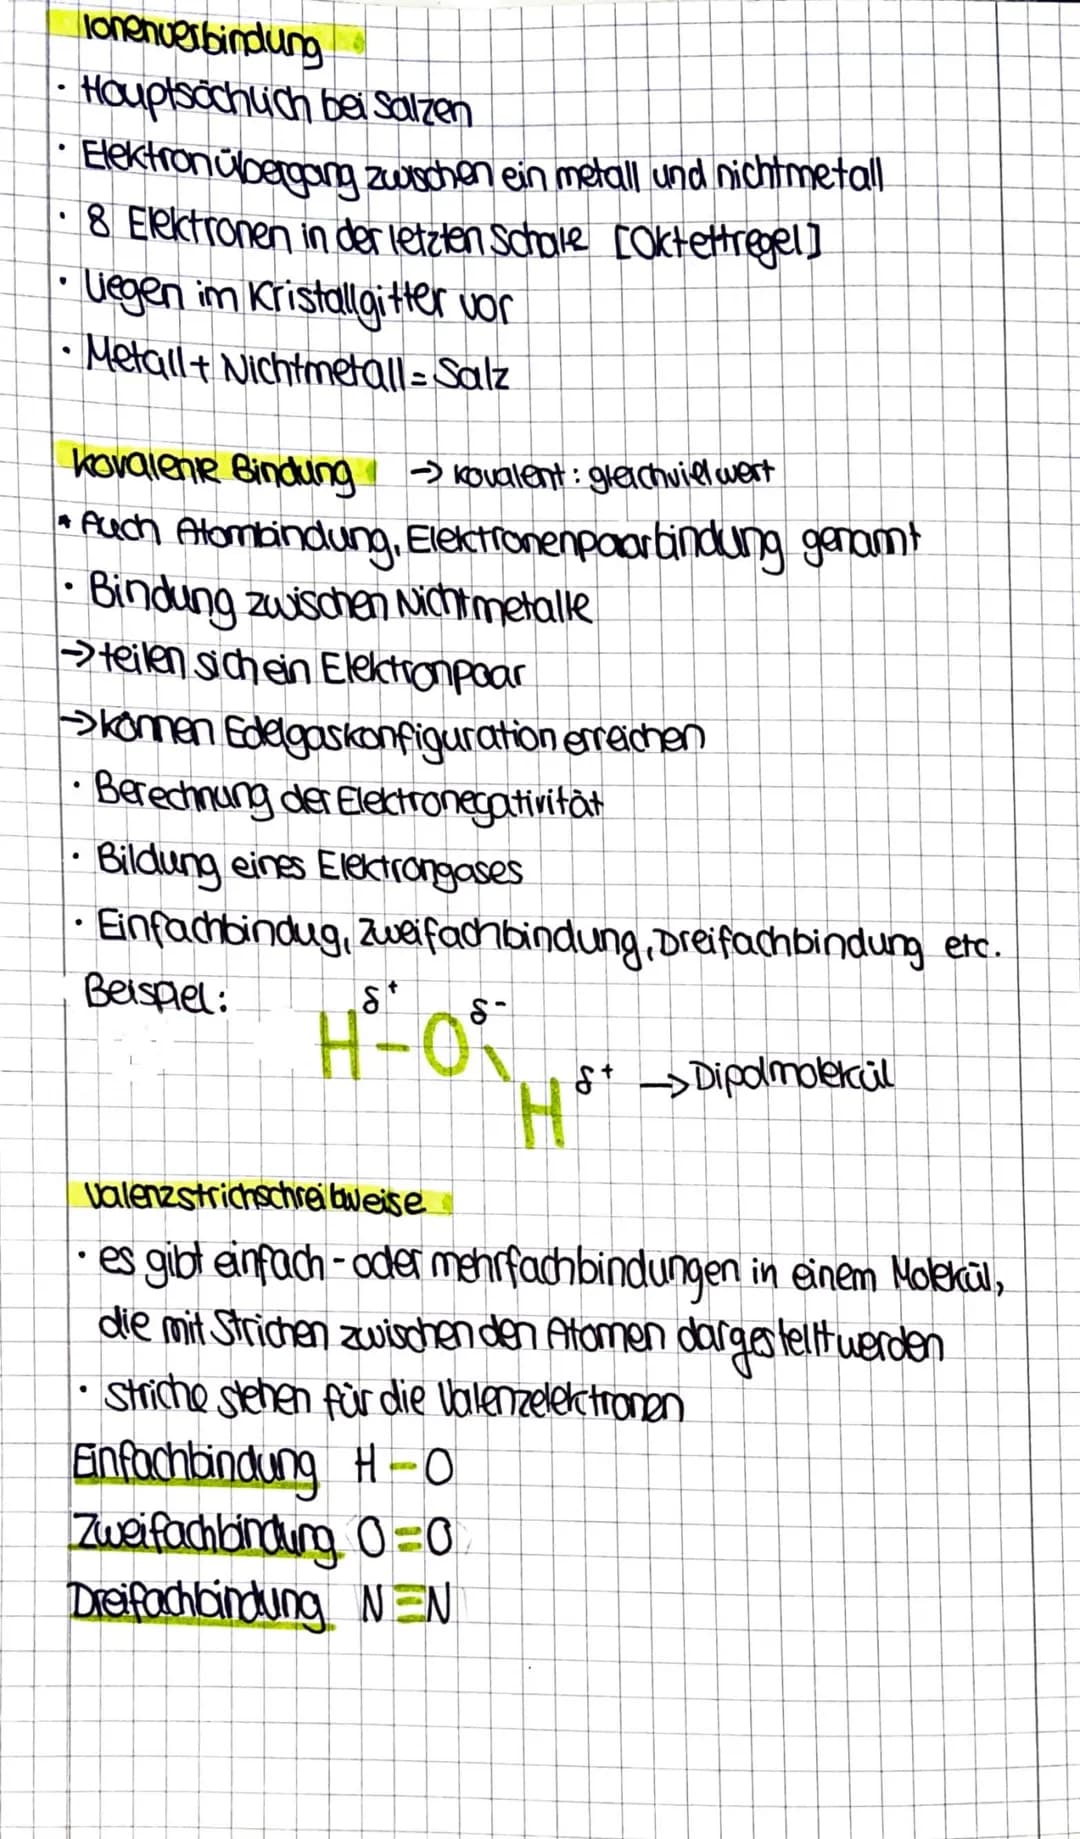 Ionenverbindung
· Hauptsächlich bei Salzen
· Elektronübergang zwischen ein metall und nichtmetall
· 8 Elektronen in der letzten Schale [Oktettregel]
· Liegen im Kristallgitter vor
· Metall + Nichtmetall = Salz
Kovalene Bindung → Kovalent: gleichvielwert
* Auch Atombindung, Elektronenpaarbindung genannt
· Bindung zwischen Nichtmetalle
→ teilen sich ein Elektronpaar
→ können Edelgaskonfiguration erreichen
· Berechnung der Elektronegativität
· Bildung eines Elektrongases
· Einfachbindug, Zweifachbindung, Dreifachbindung etc.
Beispiel: δ+ δ-
H-O
\ δ+ → Dipolmolekül
H
Valenzstrichschreibweise
· es gibt einfach- oder mehrfachbindungen in einem Molekül,
die mit Strichen zwischen den Atomen dargestellt werden
· striche stehen für die Valenzelektronen
Einfachbindung H-O
Zweifachbindung O=O
Dreifachbindung N≡N